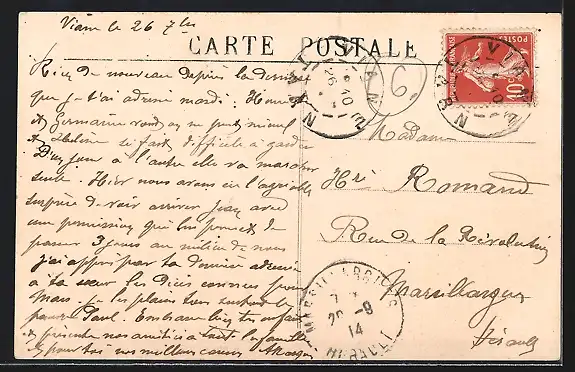 Viane le 26 7bre
CARTE POSTALE
Rien de nouveau depuis la dernière
que je t'ai adressé mardi : Henri
et Germaine vont on ne peut mieux
et Hélène se fait difficile à garder
D'un jour à l'autre elle va marcher
seule. Hier nous avons eu l'agréable
surprise de voir arriver Jean avec
une permission qui lui permet de
passer 3 jours au milieu de nous
j'ai appris par ta dernière adressée
à ta sœur les
Mais je les plains surtout le
pauvre Paul. Embrasse bien tes enfants
et présente nos amitiés à toute la famille
et pour toi nos meilleurs
6.
Madame
Hri Romand
Rue de la Révolution
Marsillargues
Hérault
POSTES
10
MARSILLARGUES
14
HERAULT